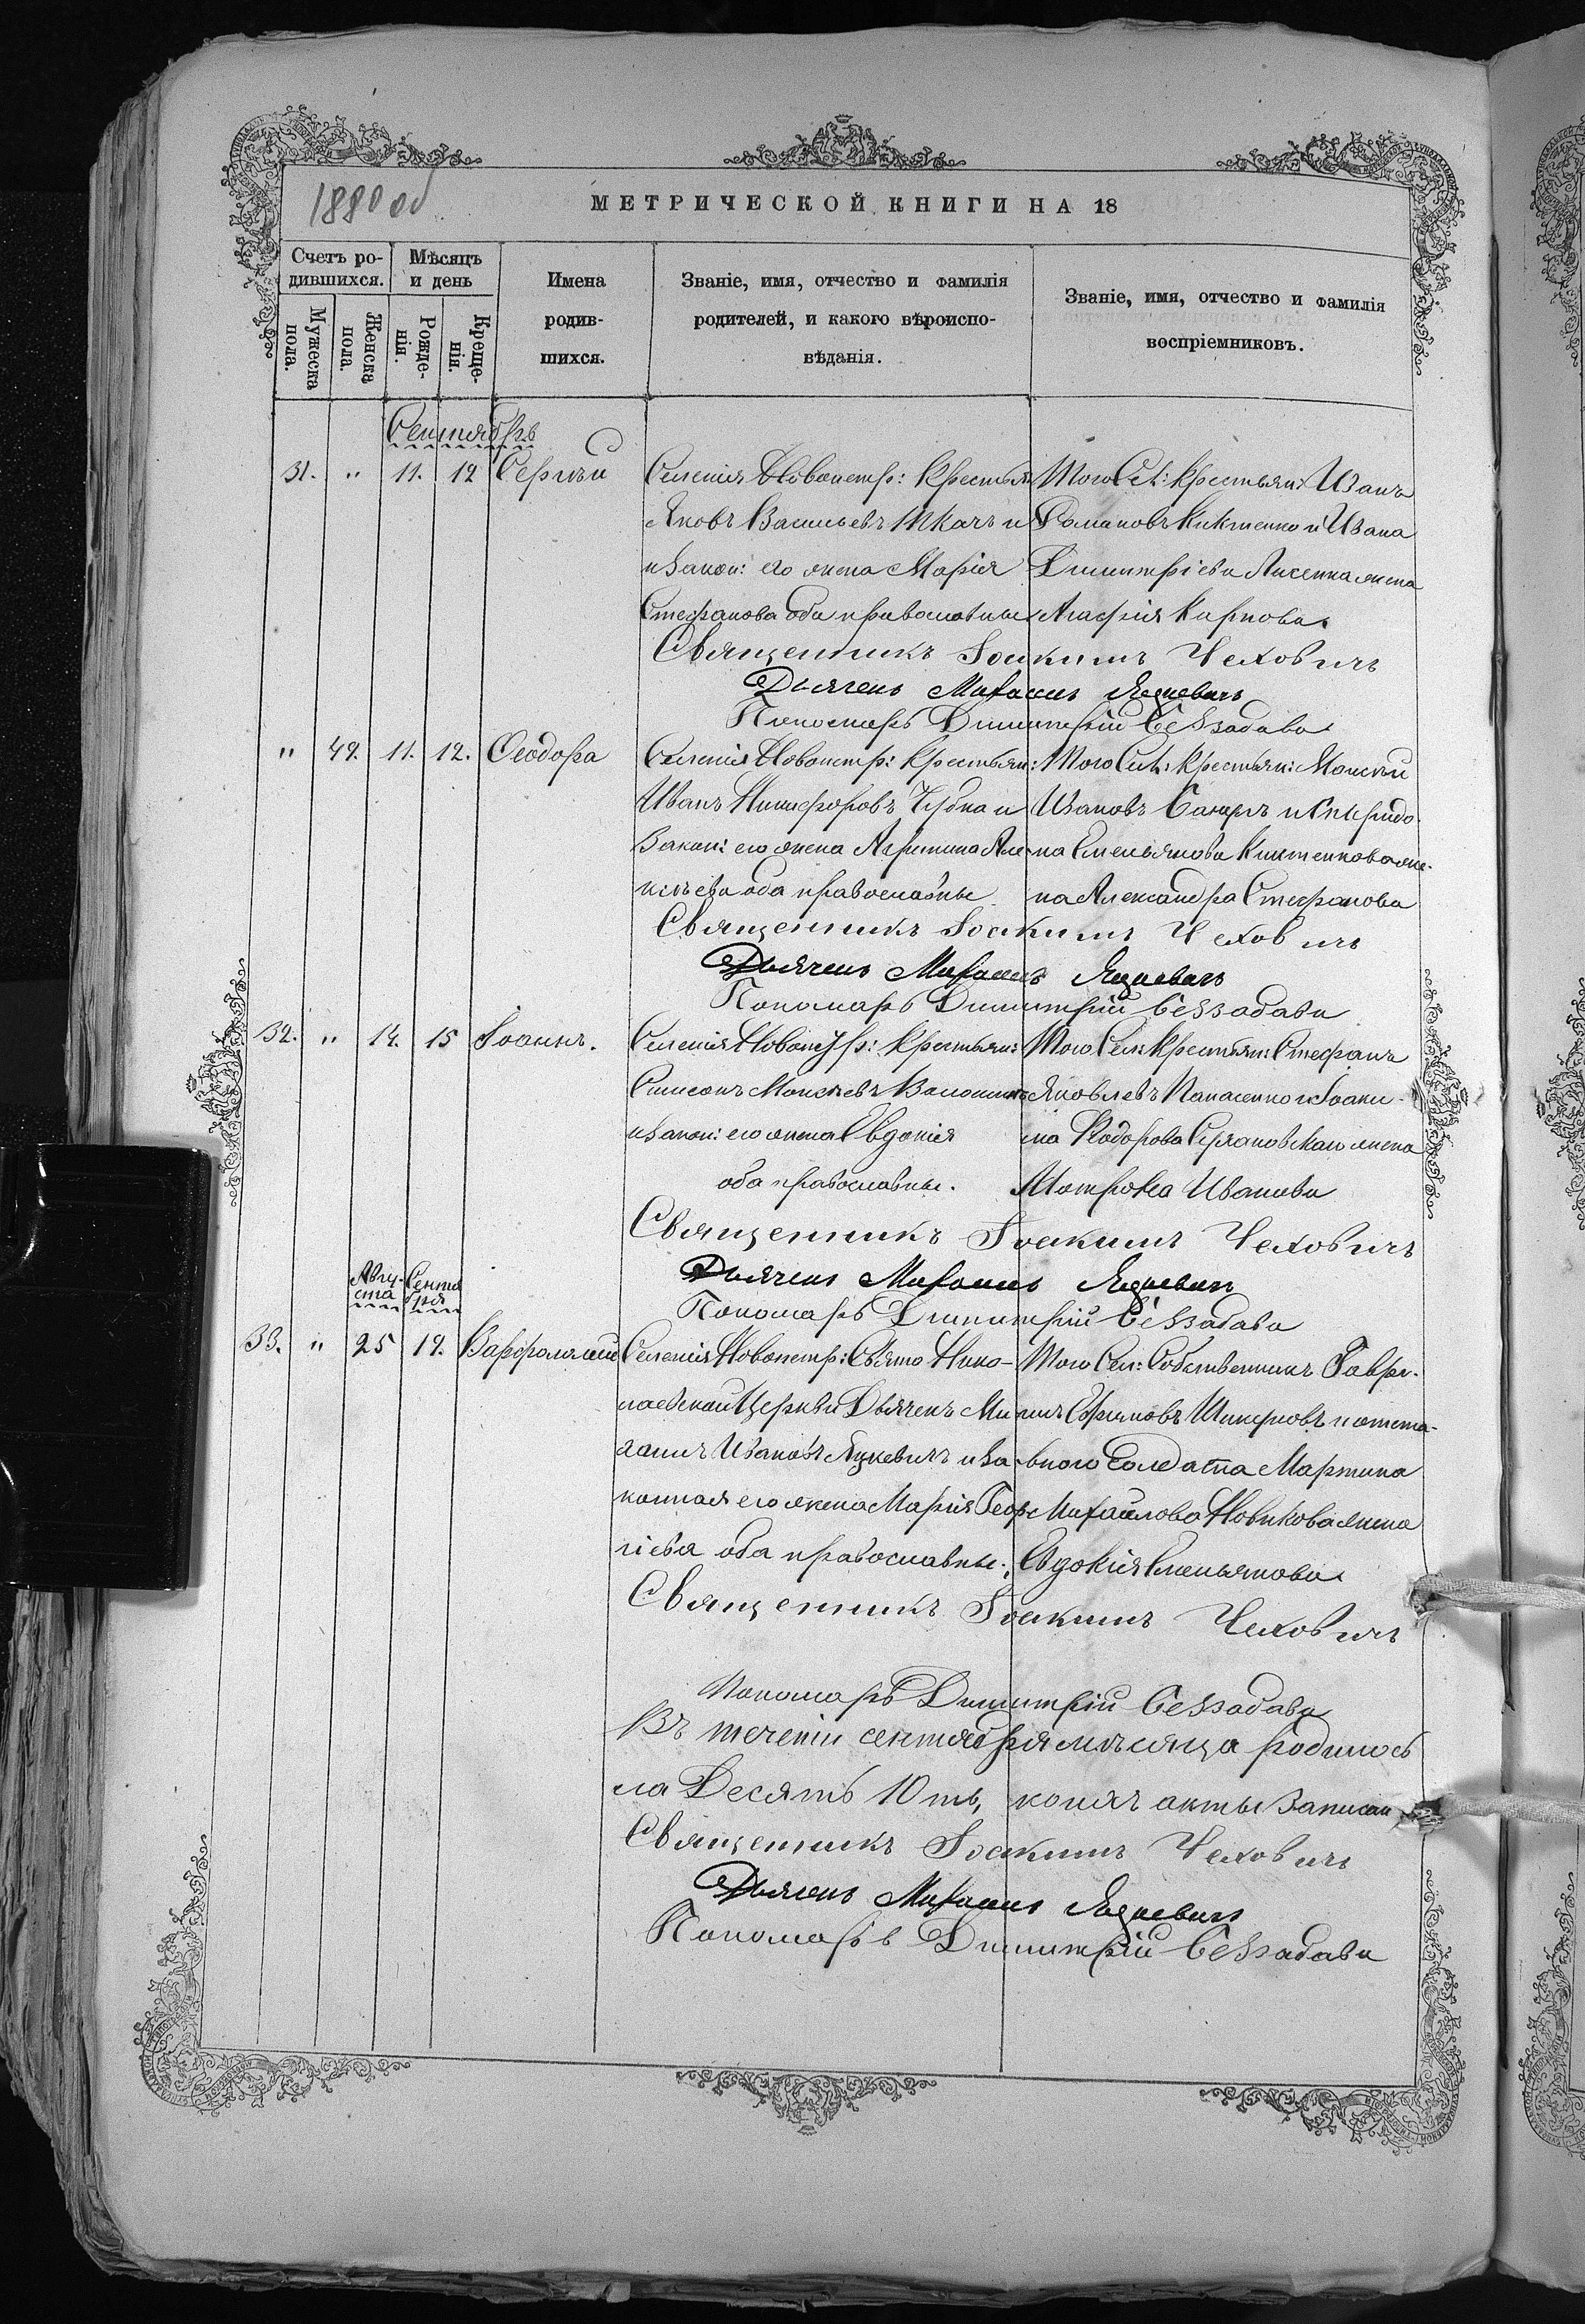 1880 об
МЕТРИЧЕСКОЙ КНИГИ НА 18
Счетъ ро-
дившихся.
Мѣсяцъ
и день
Мужеска
пола.
Женска
пола.
Рожде-
нія.
Креще-
нія.
Имена
родив-
шихся.
Званіе, имя, отчество и фамилія
родителей, и какого вѣроиспо-
вѣданія.
Званіе, имя, отчество и фамилія
воспріемниковъ.
Сентябрь
31. " 11. 12 Сергѣй
Селенія Новопетр: Крестьян
Яковъ Васильевъ Ткачъ и
и закон: его жена Марія
Стефанова оба православные
Того Сел: Крестьян: Иванъ
Романовъ Киктенко и Ивана
Димитріева Лисенка жена
Агафія Карпова.
Священникъ Іоакимъ Чеховичъ
Дьячекъ Михаилъ Яцкевичъ
Пономарь Димитрій Беззабава
" 49. 11. 12. Ѳеодора
Селенія Новопетр: Крестьян:
Иванъ Никифоровъ Чубка и
закон: его жена Агрипина Але-
ксѣева оба православные
Того Сел: Крестьян: Моисей
Ивановъ и Спиридо-
на Емельянова Киктенкова же-
на Александра Стефанова
Священникъ Іоакимъ Чеховичъ
Дьячекъ Михаилъ Яцкевичъ
Пономарь Димитрій Беззабава
32. " 14. 15 Іоаннъ.
Селенія Новопетр: Крестьян:
Симеонъ Моисѣевъ Волошинъ
и закон: его жена Евдокія
оба православные.
Того Сел: Крестьян: Стефанъ
Яковлевъ Панасенко и Іоаки-
ма Ѳеодорова жена
Матрона Иванова
Священникъ Іоакимъ Чеховичъ
Дьячекъ Михаилъ Яцкевичъ
Пономарь Димитрій Беззабава
Авгу-
ста
Сентя
бря
33. " 25 19. Варфоломей
Селенія Новопетр: Свято Нико-
лаевской Церкви Дьячекъ Ми
хаилъ Ивановъ Яцкевичъ и за-
конная его жена Марія Геор
гіева оба православные.
Того Сел: Собственникъ Гаври-
илъ и отста-
вного Солдата Мартина
Михаилова Новикова жена
Евдокія Емельянова
Священникъ Іоакимъ Чеховичъ
Пономарь Димитрій Беззабава
Въ теченіи сентября мѣсяца родилось
Десять 10ть, коихъ акты записан
Священникъ Іоакимъ Чеховичъ
Дьячекъ Михаилъ Яцкевичъ
Пономарь Димитрій Беззабава